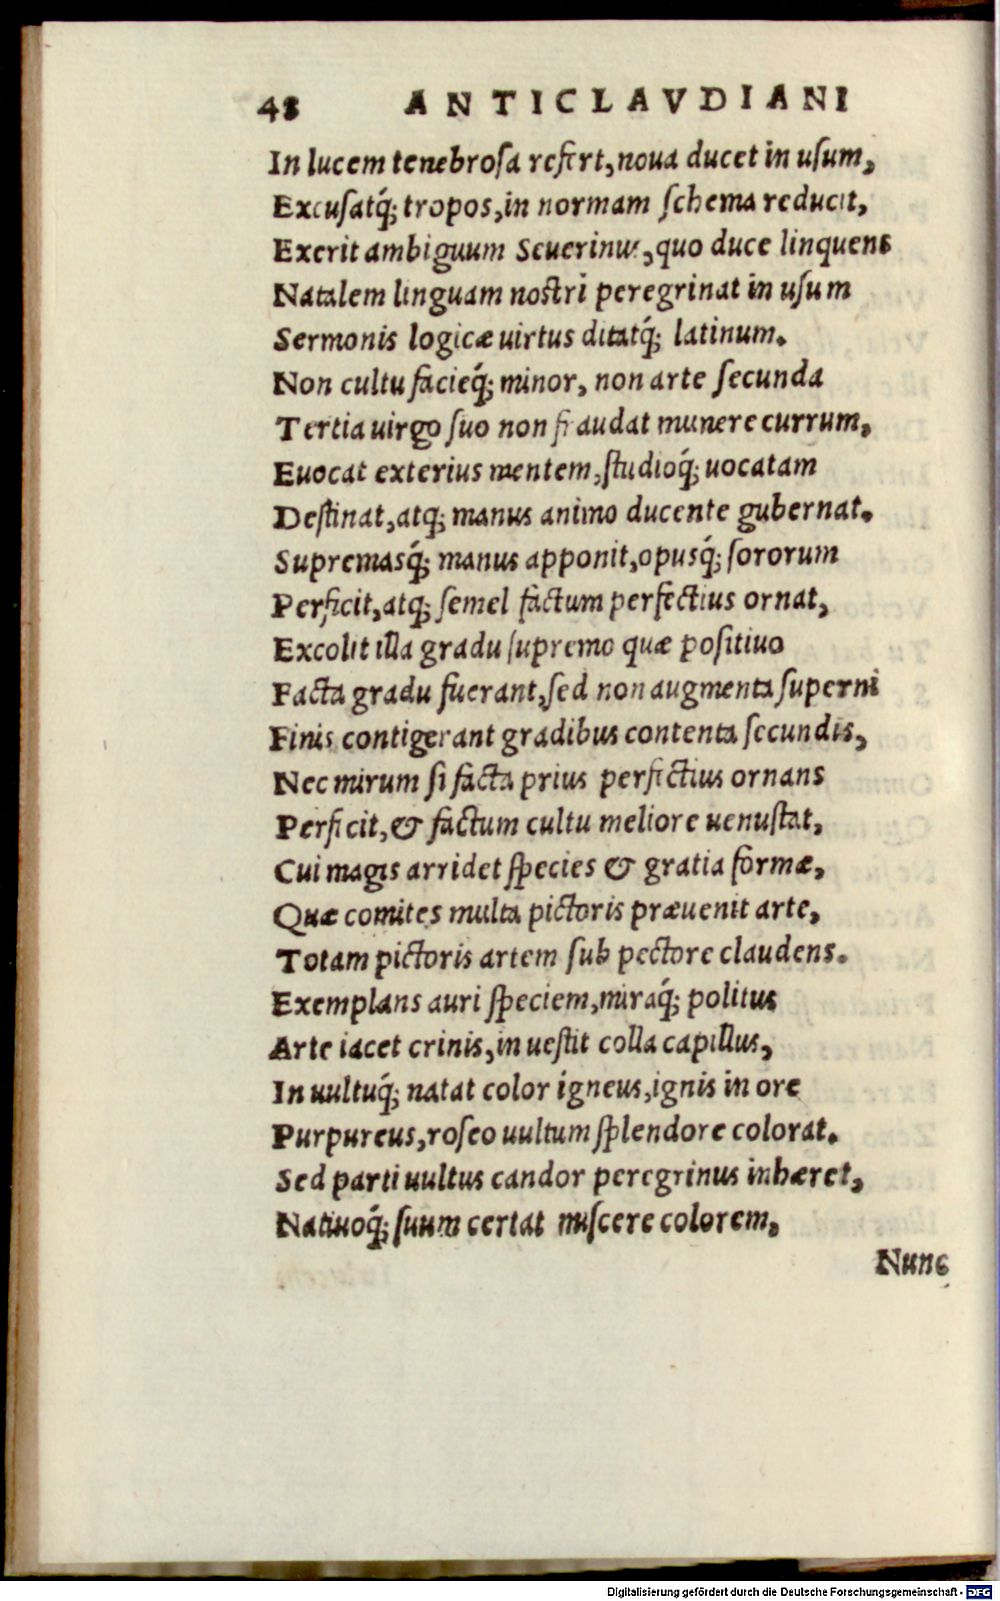 48 ANTICLAVDIANI
In lucem tenebroſa refert, noua ducet in uſum,
Excuſatq́; tropos, in normam ſchema reducit,
Exerit ambiguum Seuerinus, quo duce linquens
Natalem linguam noſtri peregrinat in uſum
Sermonis logicæ uirtus ditatq́; latinum.
Non cultu facieq́; minor, non arte ſecunda
Tertia uirgo ſuo non fraudat munere currum,
Euocat exterius mentem, ſtudioq́; uocatam
Deſtinat, atq; manus animo ducente gubernat.
Supremasq́; manus apponit, opusq́; ſororum
Perficit, atq; ſemel factum perfectius ornat,
Excolit illa gradu ſupremo quæ poſitiuo
Facta gradu fuerant, ſed non augmenta ſuperni
Finis contigerant gradibus contenta ſecundis,
Nec mirum ſi facta prius perfectius ornans
Perficit, & factum cultu meliore uenuſtat,
Cui magis arridet ſpecies & gratia formæ,
Quæ comites multa pictoris præuenit arte,
Totam pictoris artem ſub pectore claudens.
Exemplans auri ſpeciem, miraq́; politus
Arte iacet crinis, in ueſtit colla capillus,
In uultuq́; natat color igneus, ignis in ore
Purpureus, roſeo uultum ſplendore colorat.
Sed parti uultus candor peregrinus inhæret,
Natiuoq́; ſuum certat miſcere colorem,
Nunc
Digitalisierung gefördert durch die Deutsche Forschungsgemeinschaft - DFG